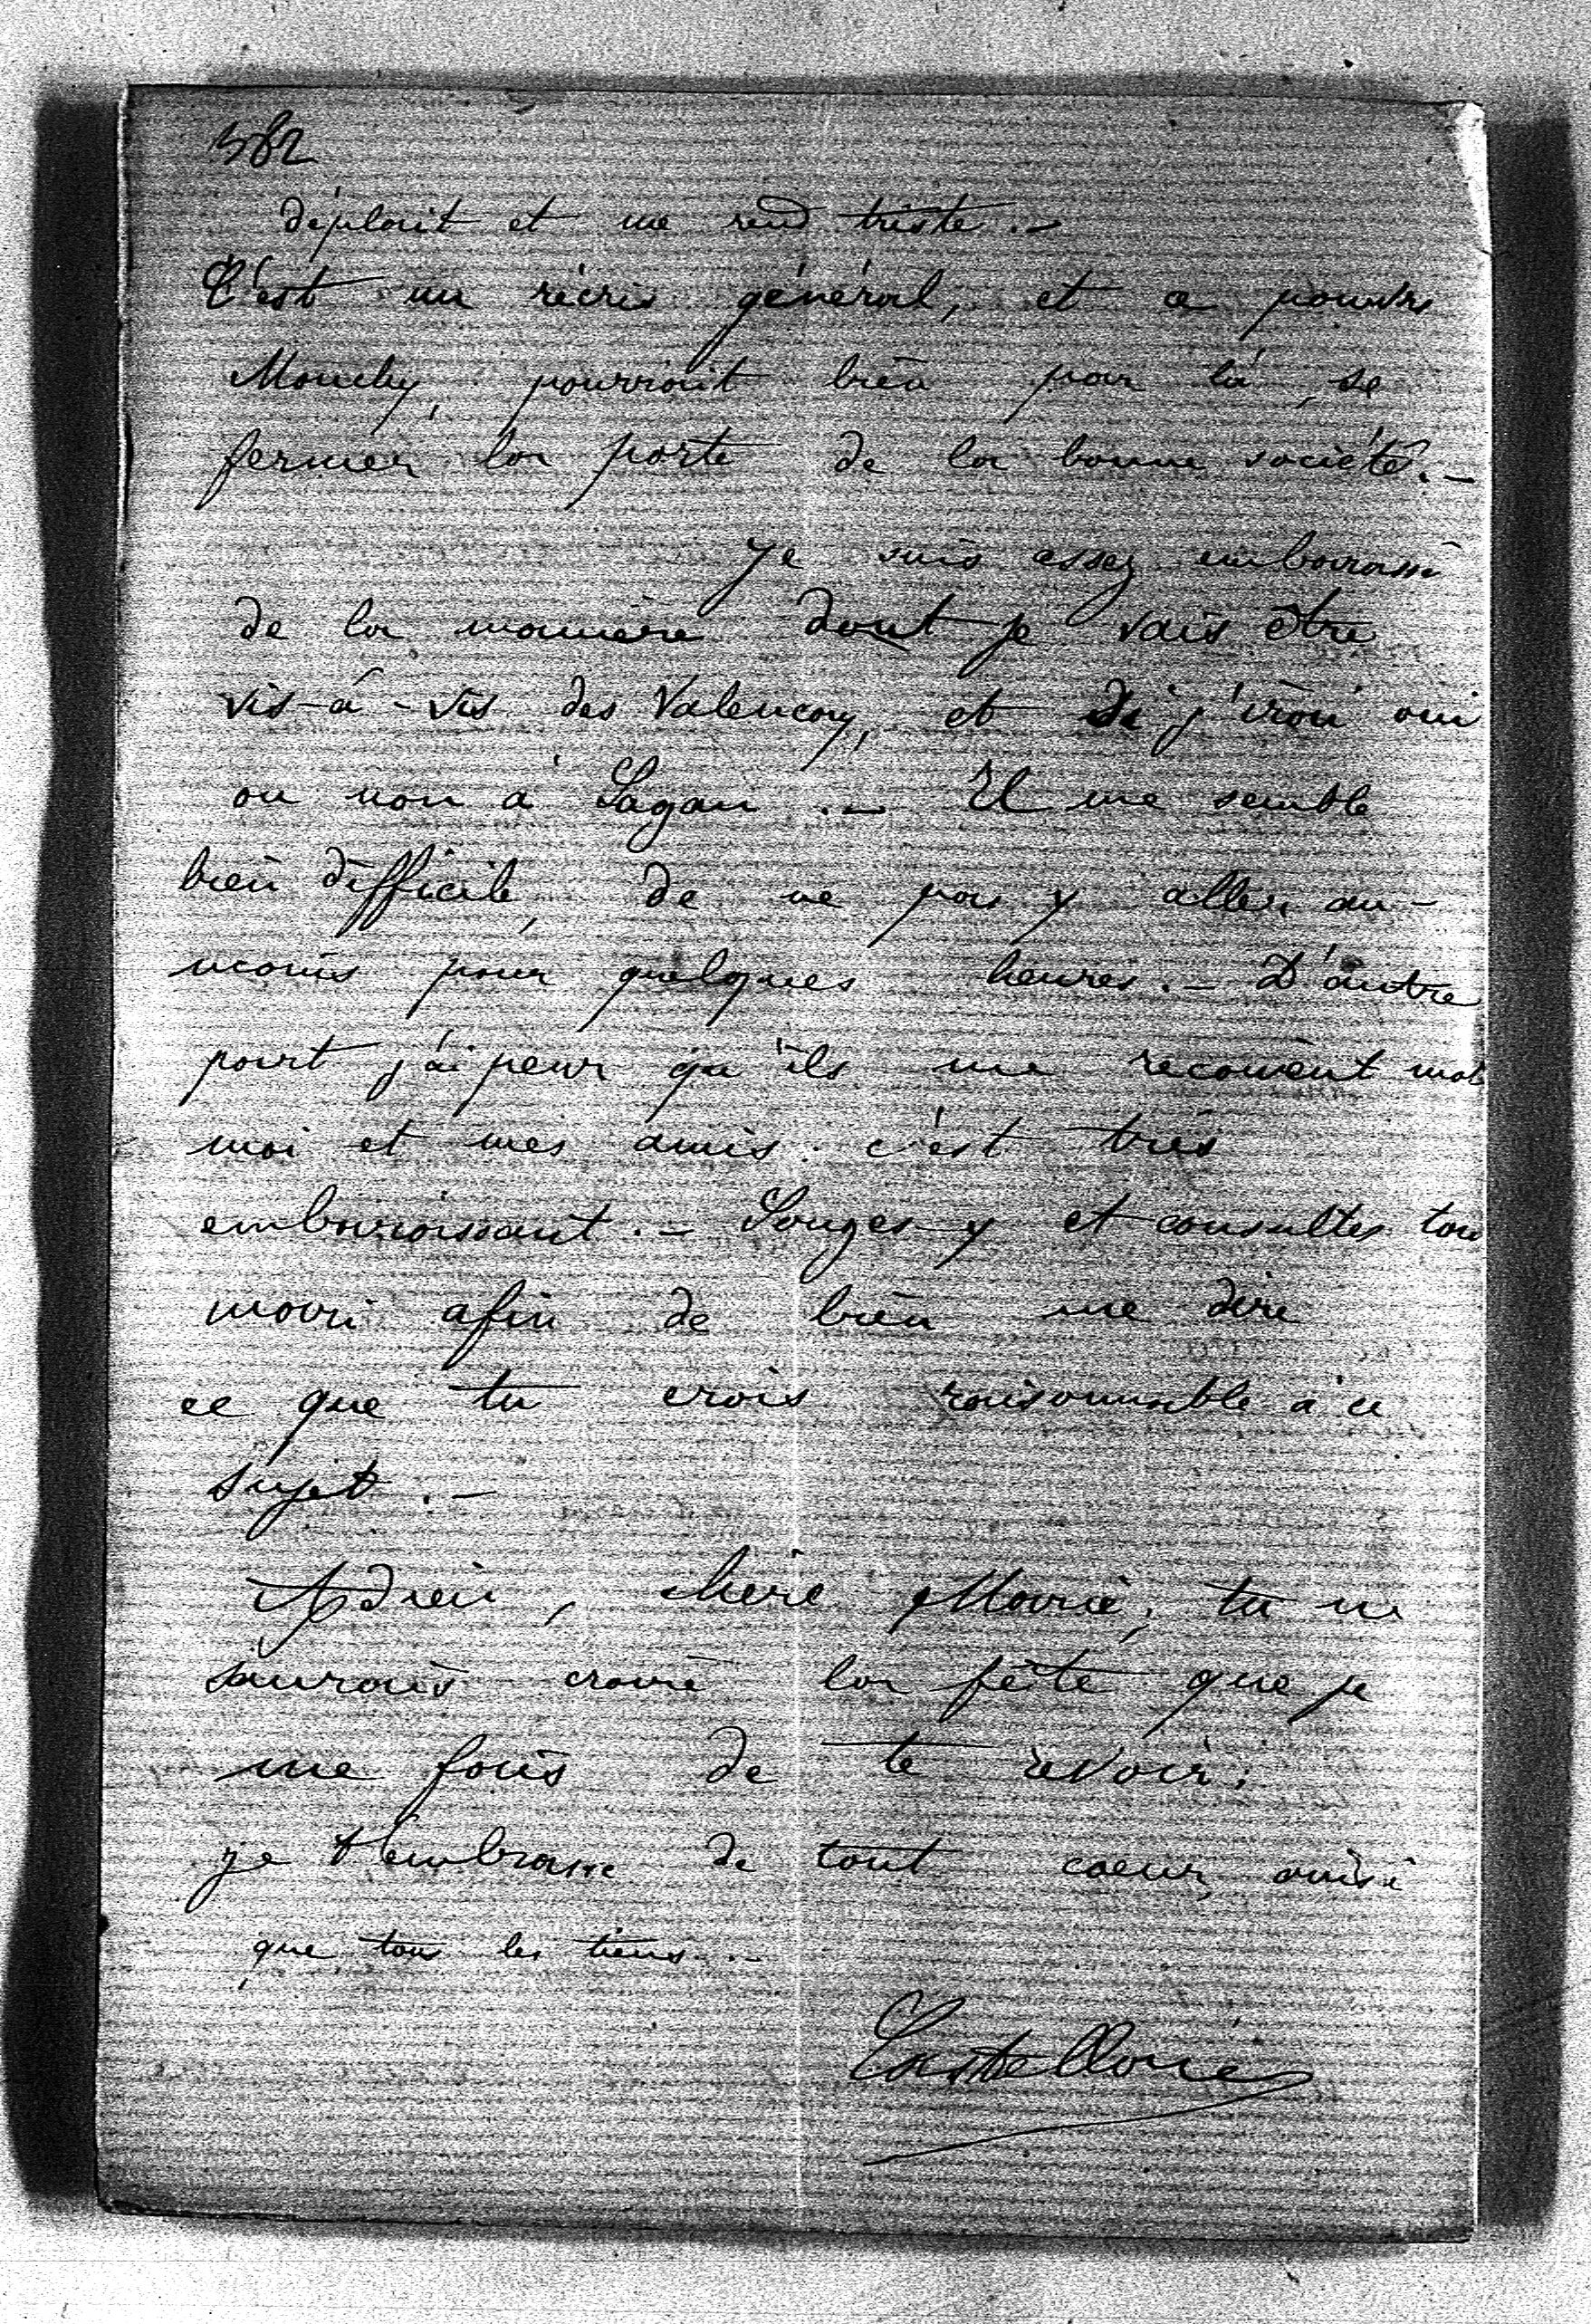 582
déplait et me rend triste. -
C'est un récris général, et ce pauvre
Mouchy, pourrait bien par là, se
fermer la porte de la bonne société. -
Je suis assez embarassé
de la manière dont je vais être
vis-à-vis des Valencay, et si j'irai oui
ou non à Sagan. - Il me semble
bien difficile, de ne pas y aller au-
moins pour quelques heures. - D'autre
part j'ai peur qu'ils me recoivent mal
moi et mes amis. c'est très
embarrassant. - Songes y et consultes ton
mari afin de bien me dire
ce que tu crois raisonnable à ce
sujet. -
Adieu, chère Marie, tu ne
saurais croire la fête que je
me fais de te revoir;
je t'embrasse de tout coeur, ainsi
que tous les tiens. -
Castellane